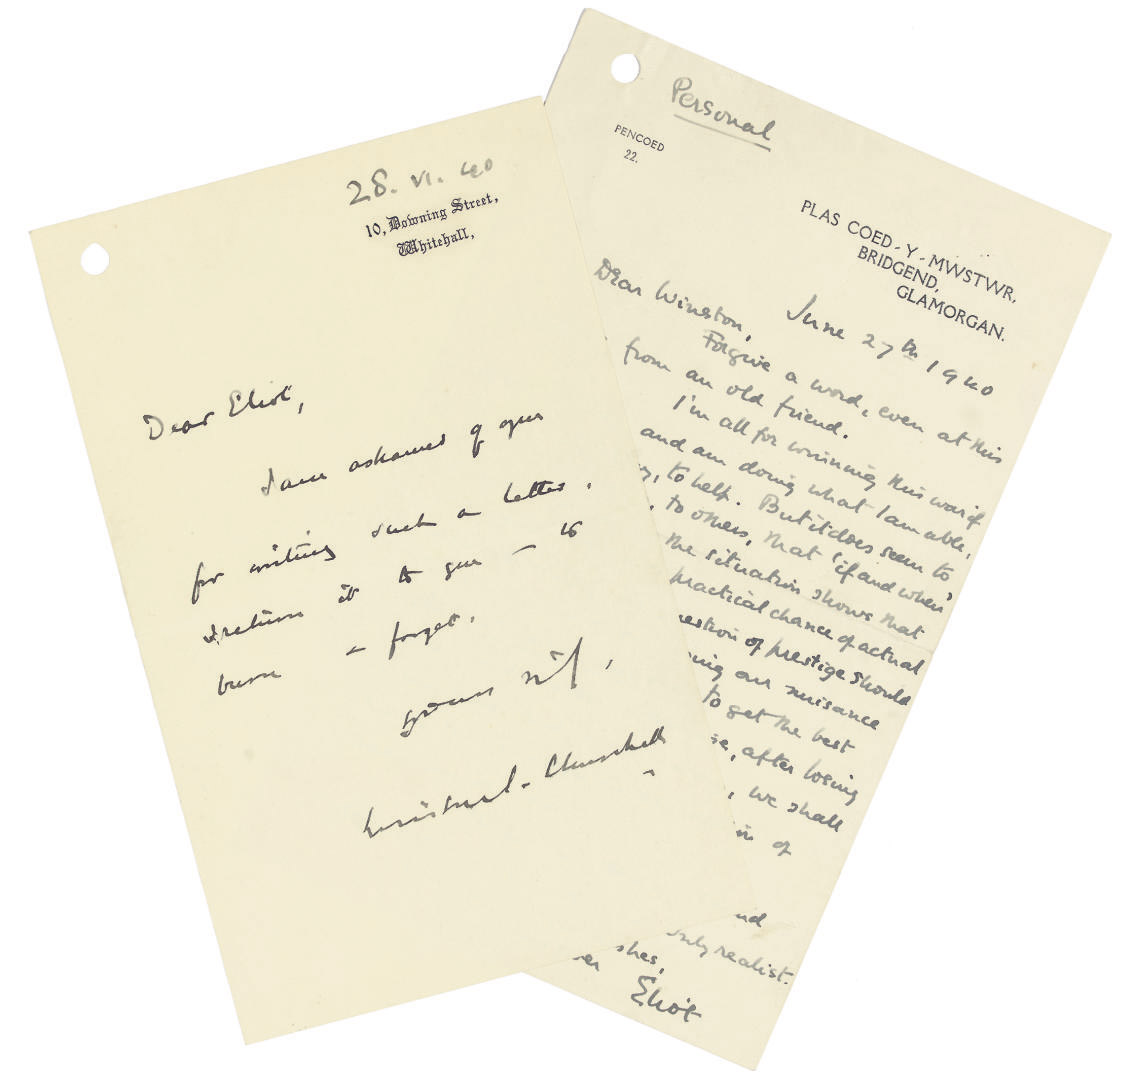 28. VI. 40
10, Downing Street,
Whitehall,
Dear Eliot,
I am ashamed of you
for writing such a letter.
I return it to you – to
burn & forget.
Yours
Winston S. Churchill
Personal
PENCOED
22.
PLAS COED-Y-MWSTWR,
BRIDGEND,
GLAMORGAN.
June 27th 1940
Dear Winston,
Forgive a word, even at this
from an old friend.
I'm all for winning this war if
and am doing what I am able,
, to help. But it does seem to
, to others, that 'if and when'
the situation shows that
practical chance of actual
question of prestige should
our nuisance
to get the best
, after losing
, we shall
of
only realist.
Eliot